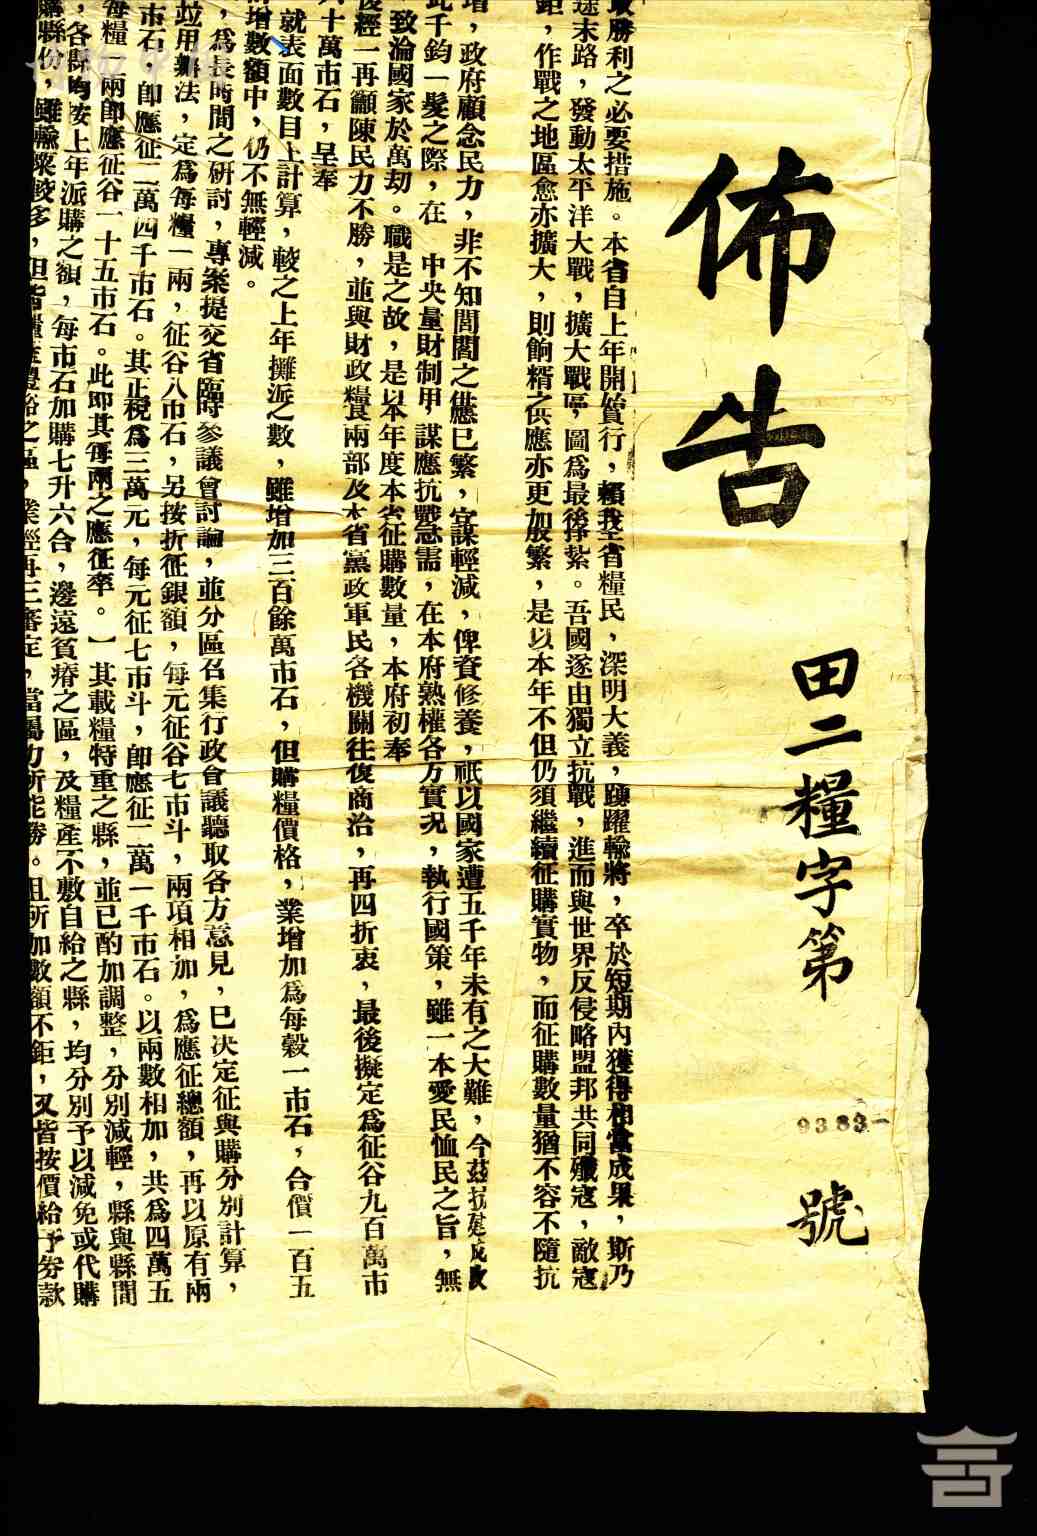 佈告
田二糧字第 9383一 號
勝利之必要措施。本省自上年開始實行，賴我全省糧民，深明大義，踴躍輸將，卒於短期內獲得相當成果，斯乃
途末路，發動太平洋大戰，擴大戰區，圖爲最後掙紮。吾國遂由獨立抗戰，進而與世界反侵略盟邦共同殲寇，敵寇
鉅，作戰之地區愈亦擴大，則餉糈之供應亦更加殷繁，是以本年不但仍須繼續征購實物，而征購數量猶不容不隨抗
增，政府顧念民力，非不知閭閻之供應已繁，宜謀輕減，俾資修養，祇以國家遭五千年未有之大難，今茲抗建成敗
此千鈞一髮之際，在 中央量財制用，謀應抗戰急需，在本府熟權各方實況，執行國策，雖一本愛民恤民之旨，無
致淪國家於萬劫。職是之故，是以本年度本省征購數量，本府初奉
後經一再籲陳民力不勝，並與財政糧食兩部及本省黨政軍民各機關往復商洽，再四折衷，最後擬定爲征谷九百萬市
十萬市石，呈奉
就表面數目上計算，較之上年攤派之數，雖增加三百餘萬市石，但購糧價格，業增加爲每穀一市石，合價一百五
增數額中，仍不無輕減。
，爲長時間之研討，專案提交省臨時參議會討論，並分區召集行政會議聽取各方意見，已決定征與購分別計算，
並用辦法，定爲每糧一兩，征谷八市石，另按折征銀額，每元征谷七市斗，兩項相加，爲應征總額，再以原有兩
市石，卽應征二萬四千市石。其正稅爲三萬元，每元征七市斗，卽應征二萬一千市石。以兩數相加，共爲四萬五
每糧一兩卽應征谷一十五市石。此卽其每兩之應征率。】其載糧特重之縣，並已酌加調整，分別減輕，縣與縣間
，各縣均按上年派購之額，每市石加購七升六合，邊遠貧瘠之區，及糧產不敷自給之縣，均分別予以減免或代購
購縣份，雖輸粟較多，但皆糧產豐裕之區，業經再三審定，當屬力所能勝。且所加數額不鉅，又皆按價給予券款